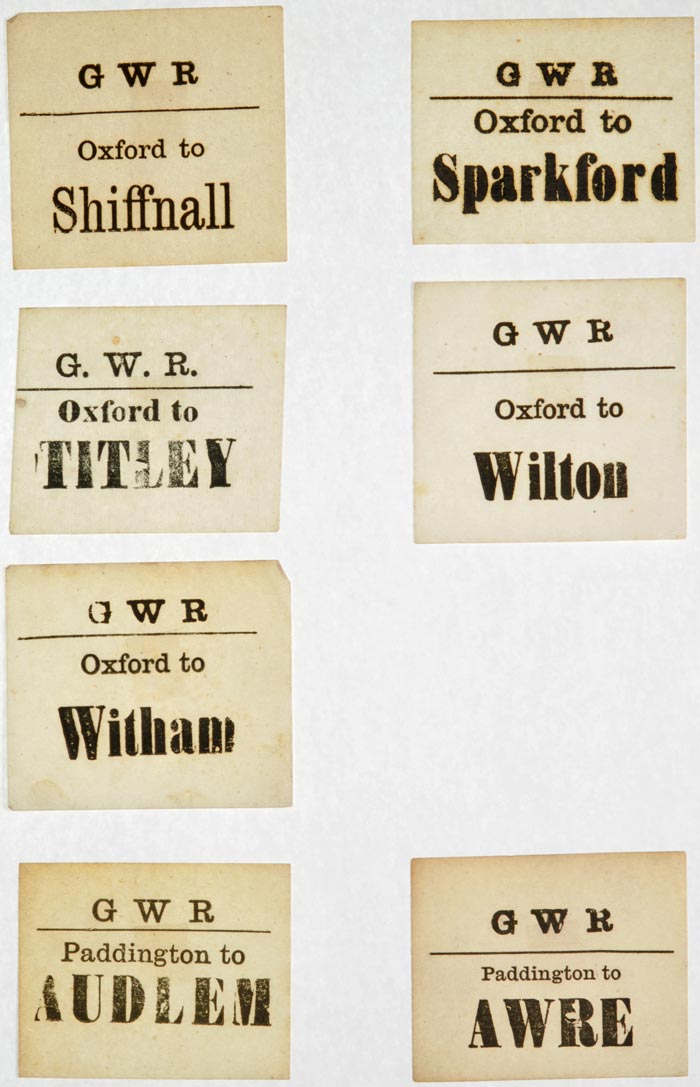 G W R
Oxford to
Shiffnall
G W R
Oxford to
Sparkford
G. W. R.
Oxford to
TITLEY
G W R
Oxford to
Wilton
G W R
Oxford to
Witham
G W R
Paddington to
AUDLEM
G W R
Paddington to
AWRE